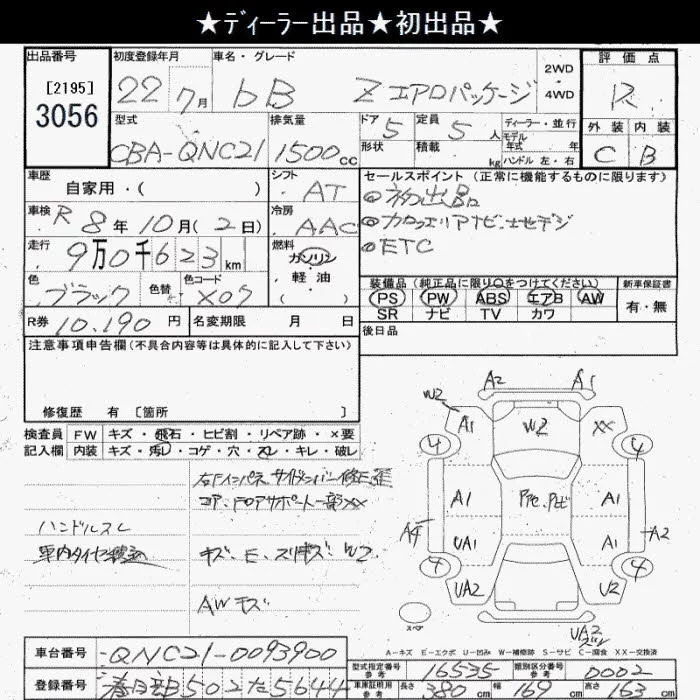 ★ディーラー出品★初出品★
出品番号 初度登録年月 車名・グレード 2WD・4WD 評価点
[2195]
3056
22年7月 bB Z エアロパッケージ R
型式 排気量 ドア 5 定員 5人 ディーラー・並行
モデル年式 年
CBA-QNC21 1500cc 形状 積載 kg ハンドル 左・右
外装 内装
C B
車歴 シフト セールスポイント (正常に機能するものに限ります)
自家用・( ) AT
◎初出品
車検 R8年10月(2日) 冷房 AAC
◎カロッツェリアナビ・地デジ
走行 9万0千623km 燃料 ガソリン・軽油・( )
◎ETC
色 ブラック 色替 色コード X07
装備品 (純正品に限り○をつけてください) 新車保証書
PS PW ABS エアB AW 有・無
SR ナビ TV カワ
R券 10,190円 名変期限 月 日 後日品
注意事項申告欄(不具合内容等は具体的に記入して下さい)
修復歴 有 [箇所 ]
検査員 FW キズ・飛石・ヒビ割・リペア跡・×要
記入欄 内装 キズ・汚レ・コゲ・穴・スレ・キレ・破レ
右Fインパネ、サイドメンバー修正歪
コア、ドロアサポート一部XX
ハンドルスレ
車内タイヤ積込
キズ・E・スリキズ・W2
AWキズ
A2 A1
W2 A1 W2 XX
4 4
A1 A1
A1 A2
UA1
4 4
UA2 U2
UA2
スペア
A-キズ E-エクボ U-凹み W-補修跡 S-サビ C-腐食 XX-交換済
車台番号 QNC21-0093900
型式指定番号 参考 16535 類別区分番号 参考 0002
登録番号 春日部502た5644
車庫証明用 参考 長さ 380cm 幅 169cm 高さ 163cm